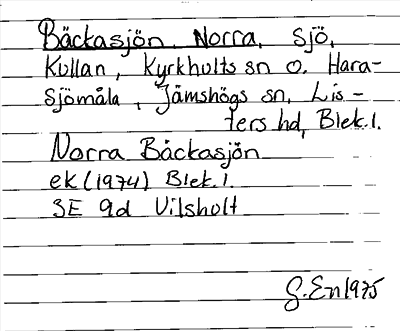 Bäckasjön. Norra, Sjö,
Kullan, Kyrkhults sn o. Hara-
sjömåla, Jämshögs sn, Lis-
ters hd, Blek. l.
Norra Bäckasjön
ek (1974) Blek. l.
3E 9d Vilshult
G. En 1975